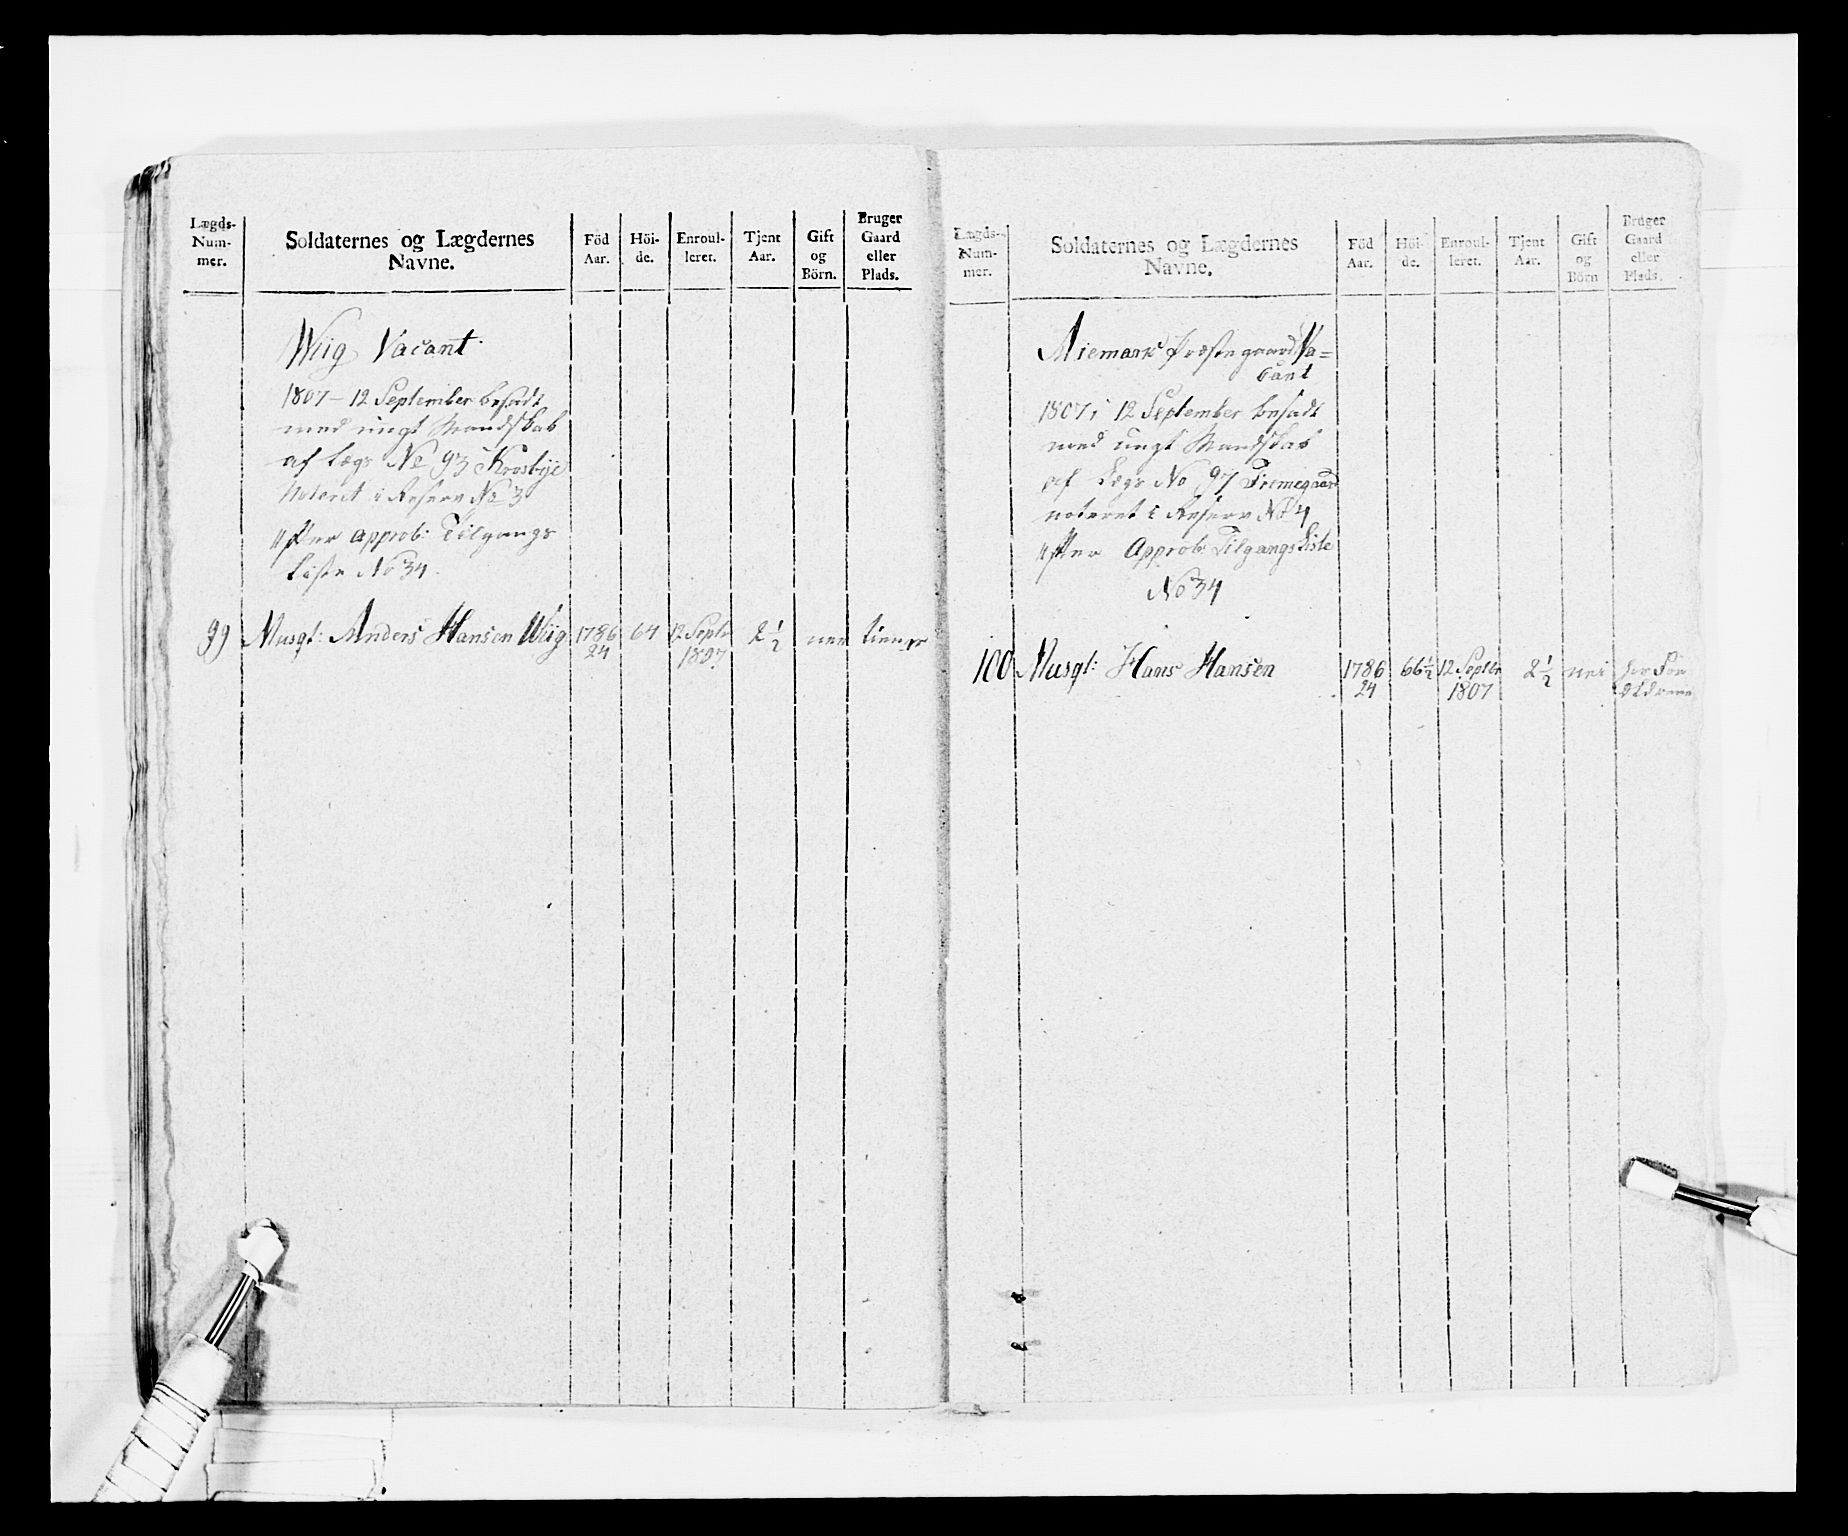 Lægds-
Num-
mer.
Soldaternes og Lægdernes
Navne.
Föd
Aar.
Höi-
de.
Enroul-
leret.
Tjent
Aar.
Gift
og
Börn.
Bruger
Gaard
eller
Plads.
Wiig Vacant
1807 - 12 September besadt
med ungt Mandskab
af Lægs No 93 Krosbye
Noteret i Reserv No 3
efter approb: Tilgangs
Liste No 34.
99 Musqt: Anders Hansen Wiig 1786 64 12 Septr 2 1/2 nei tiener
24 1807
Lægds-
Num-
mer.
Soldaternes og Lægdernes
Navne.
Föd
Aar.
Höi-
de.
Enroul-
leret.
Tjent
Aar.
Gift
og
Börn
Bruger
Gaard
eller
Plads.
Miemark Præstegaard Va=
cant
1807, 12 September besadt
med ungt Mandskab
af Lægs No 97
noteret i Reserv No 4
efter Approb: Tilgangs Liste
No 34
100 Musqt: Hans Hansen 1786 66 1/2 12 Septbr 2 1/2 nei For
24 1807 Ældrene